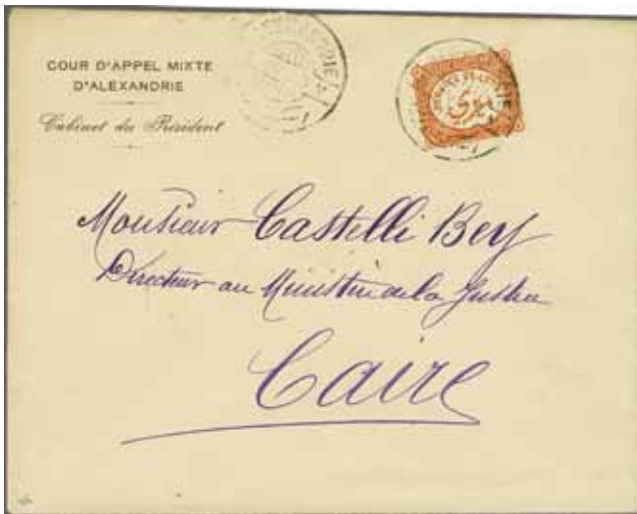 COUR D'APPEL MIXTE
D'ALEXANDRIE
Cabinet du Président
ميرى
Monsieur Castelli Bey
Directeur au Ministère de la Justice
Caire